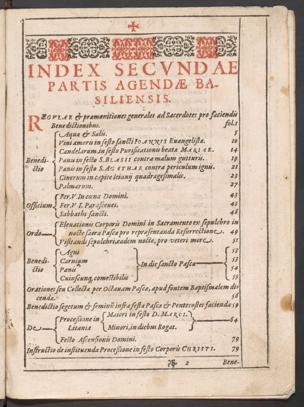 INDEX SECVNDAE
PARTIS AGENDÆ BA-
SILIENSIS.
REGVLAE & præmonitiones generales ad Sacerdotes pro faciendis
Benedictionibus. fol. 1
Aquæ & Salis. 5
Vini amoris in festo sancti IOANNIS Euangelistæ. 10
Candelarum in festo Purificationis beatæ MARIAE. 14
Benedi-
ctio
Panis in festo S. BLASII contra malum gutturis. 19
Panis in festo S. AGATHAE contra periculum ignis. 21
Cinerum in capite ieiunij quadragesimalis. 23
Palmarum. 27
Officium
Fer. V. In cœna Domini. 41
Fer. VI. Parasceues. 45
Sabbathi sancti. 46
Ordo
Eleuationis Corporis Domini in Sacramento ex sepulchro in
nocte sacra Pascæ pro repræsentanda Resurrectione. 49
Visitandi sepulchri, eadem nocte, pro veteri more. 51
Benedi-
ctio
Agni
Carnium
Panis
Cuiuscunq; comestibilis
In die sancto Pascæ
Orationes seu Collectæ per Octauam Pascæ, apud fontem Baptismalem di-
cendæ. 56
Benedictio segetum & seminis infra festa Pascæ & Pentecostes facienda 59
De
Processione in
Litania
Maiori in festo D. MARCI.
Minori, in diebus Rogat.
64
Festo Ascensionis Domini. 79
Instructio de instituenda Processione in festo Corporis CHRISTI. 79
2 Bene-